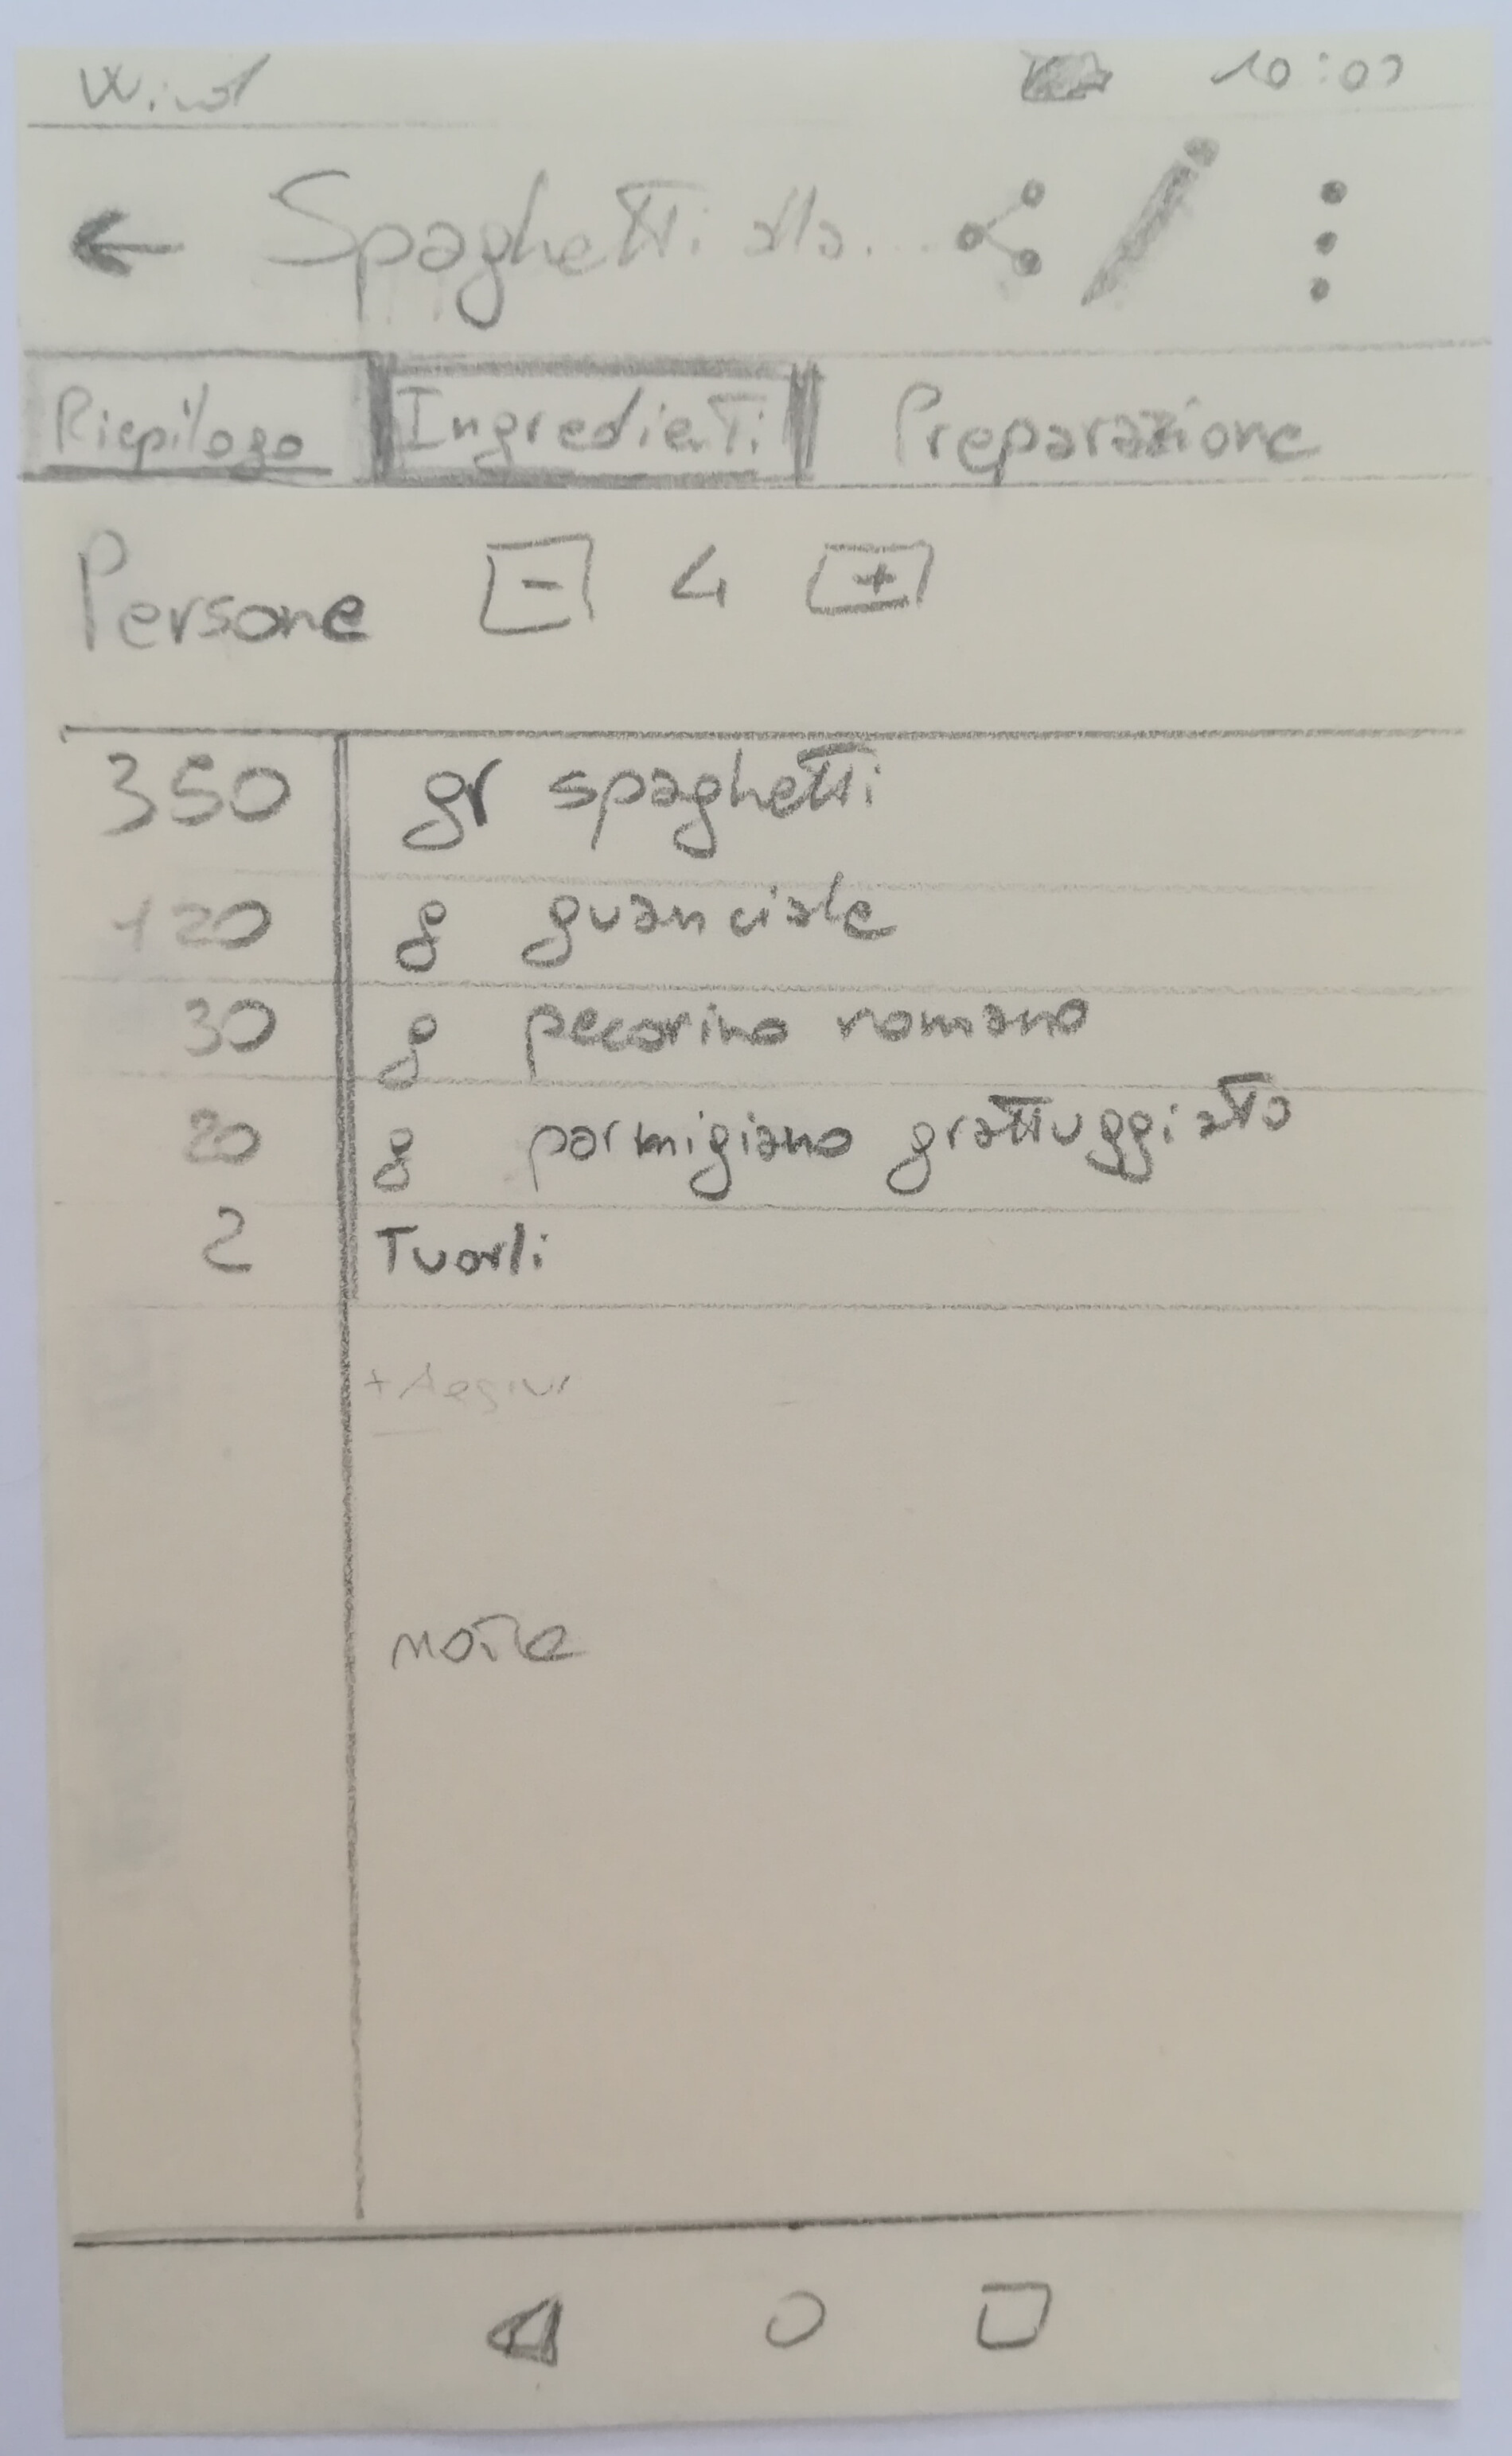 Wind 10:00
Spaghetti alla...
Riepilogo Ingredienti Preparazione
Persone - 4 +
350 gr spaghetti
120 g guanciale
30 g pecorino romano
20 g parmigiano grattuggiato
2 Tuorli
note